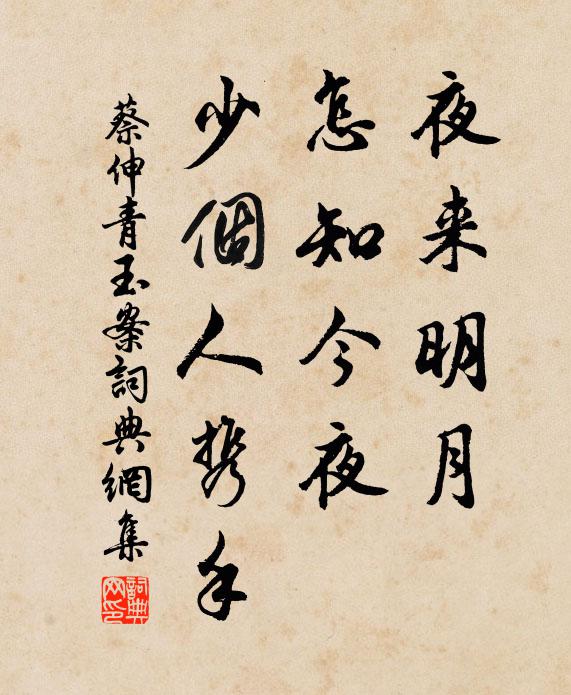 夜来明月
怎知今夜
少個人携手
蔡伸青玉案詞典網集
詞典網印